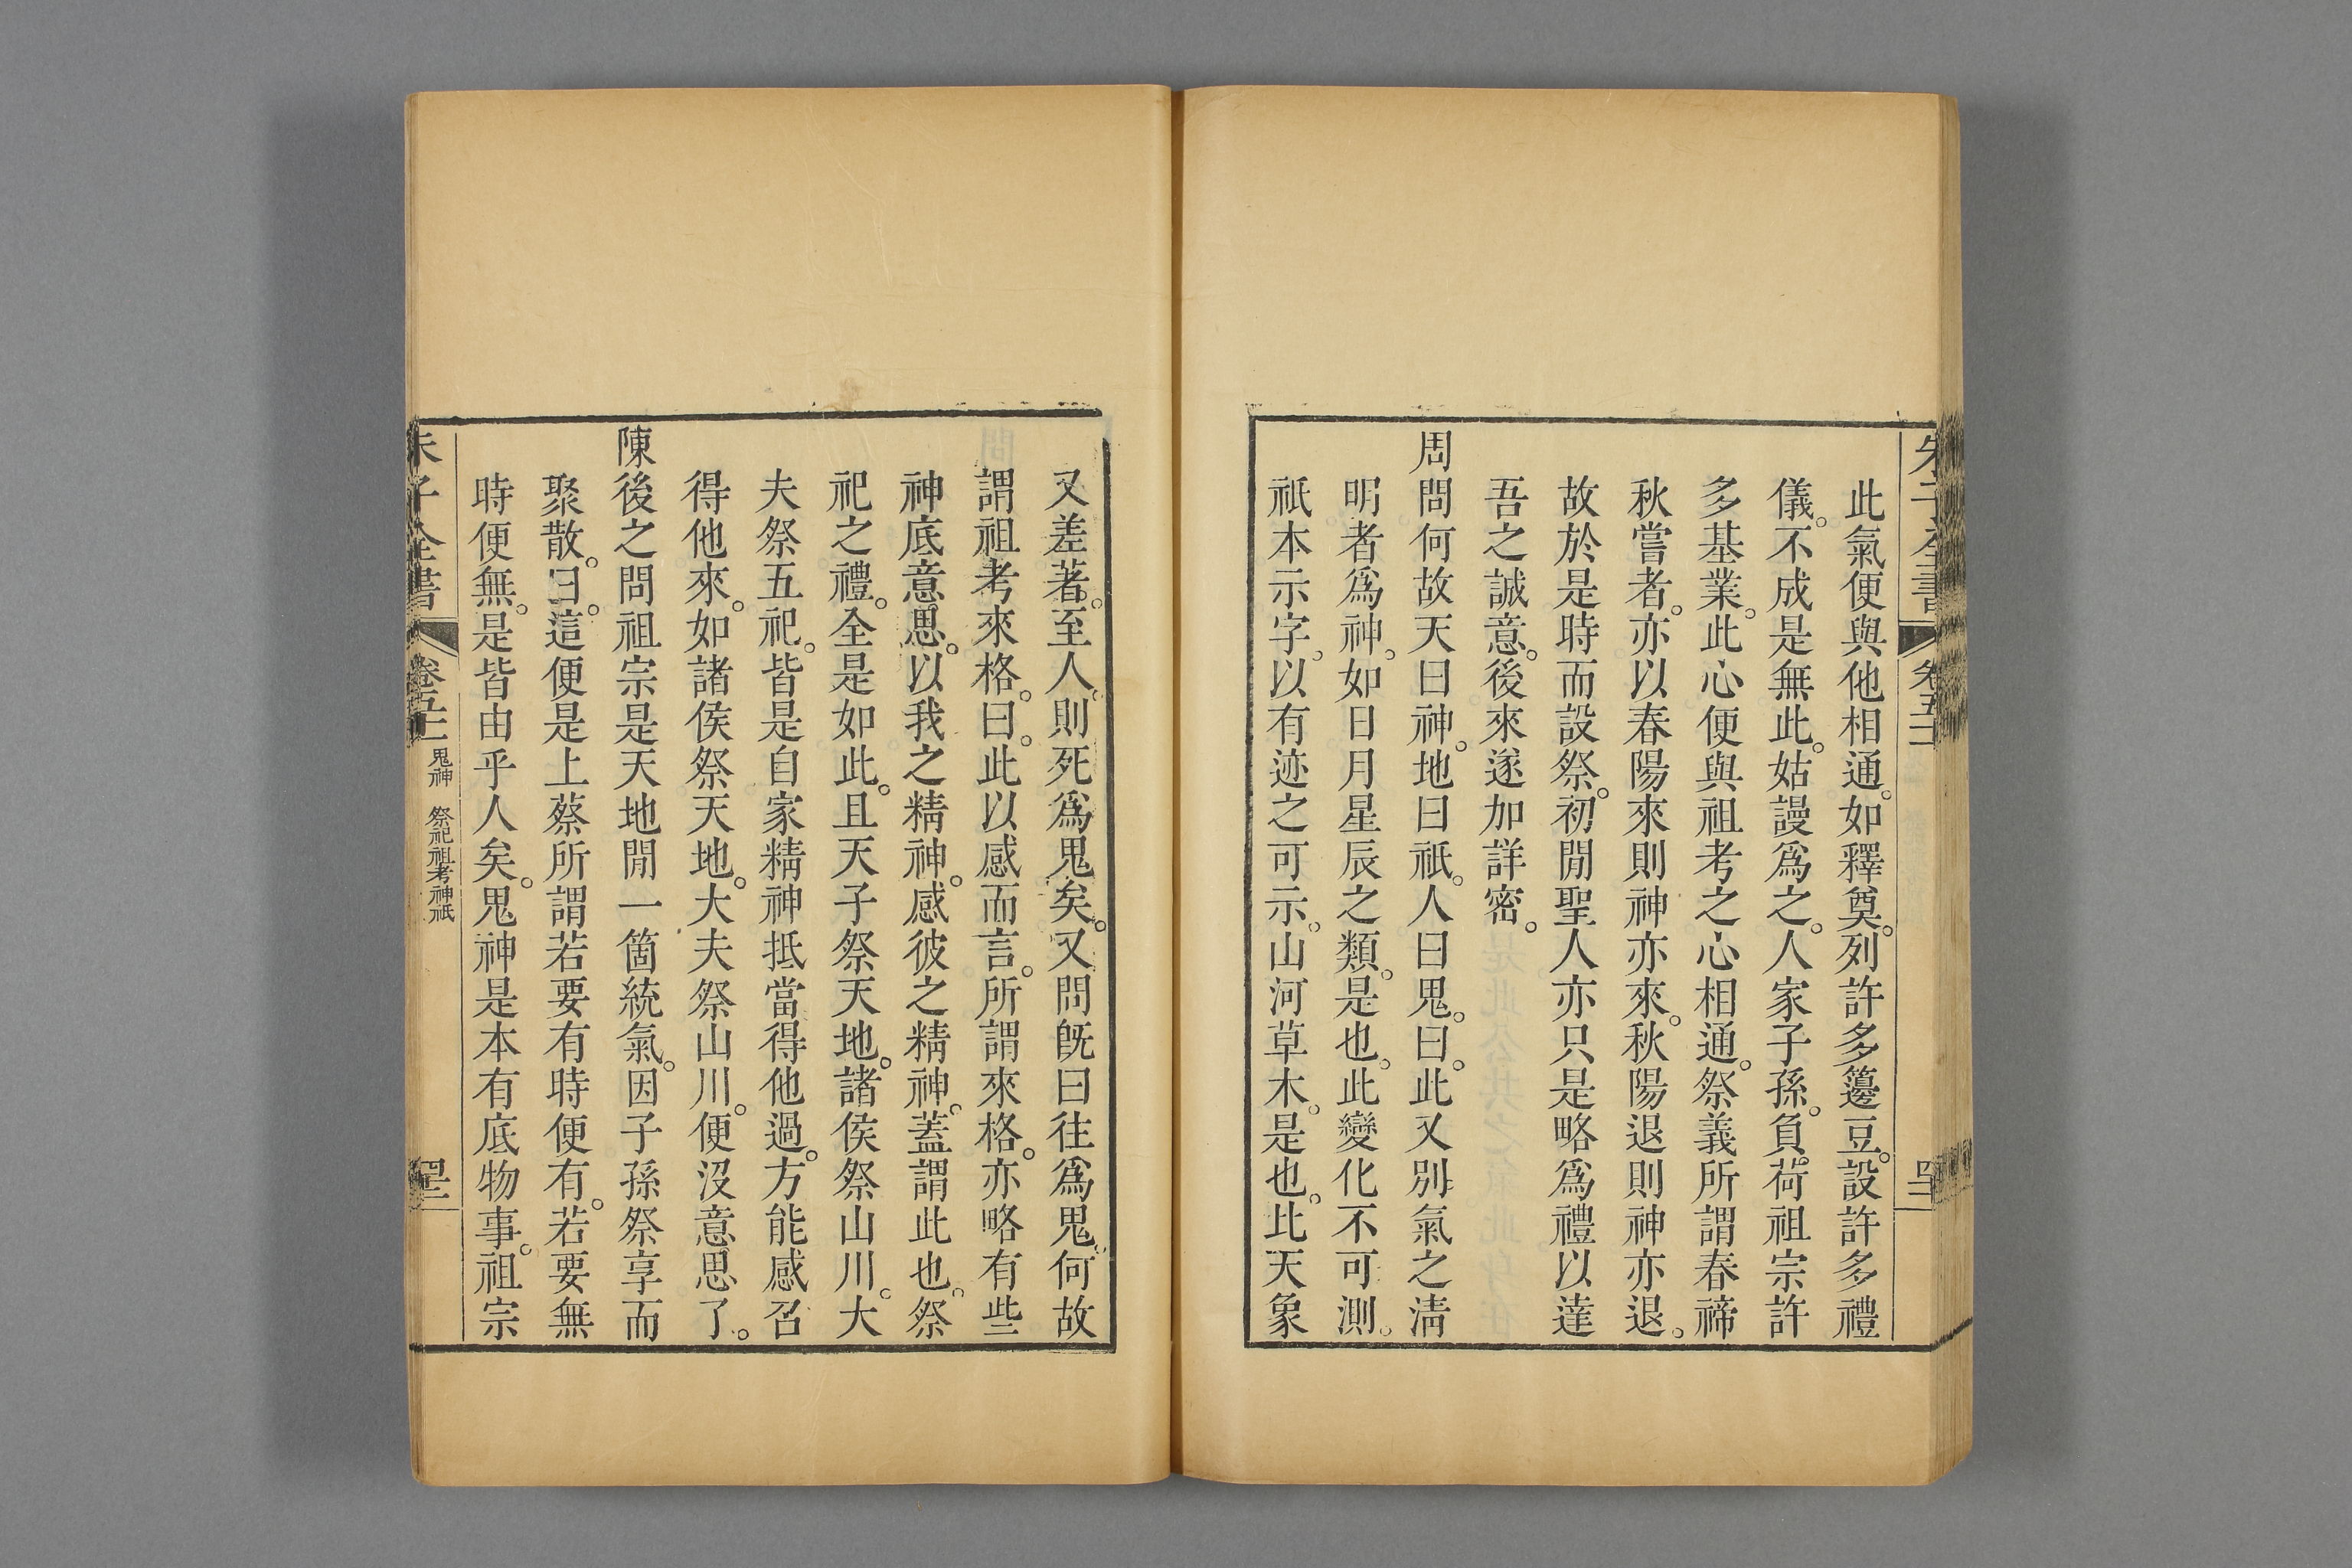 此氣便與他相通。如釋奠。列許多籩豆。設許多禮
儀。不成是無此。姑謾爲之。人家子孫。負荷祖宗許
多基業。此心便與祖考之心相通。祭義所謂春禘
秋嘗者。亦以春陽來則神亦來。秋陽退則神亦退。
故於是時而設祭。初閒聖人亦只是略爲禮以達
吾之誠意。後來遂加詳密。
周問何故天曰神。地曰祇。人曰鬼。曰。此又別氣之淸
明者爲神。如日月星辰之類。是也。此變化不可測。
祇本示字。以有迹之可示。山河草木。是也。比天象
又差著。至人。則死爲鬼矣。又問旣曰往爲鬼。何故
謂祖考來格。曰。此以感而言。所謂來格。亦略有些
神底意思。以我之精神。感彼之精神。蓋謂此也。祭
祀之禮。全是如此。且天子祭天地。諸侯祭山川。大
夫祭五祀。皆是自家精神抵當得他過。方能感召
得他來。如諸侯祭天地。大夫祭山川。便沒意思了。
陳後之問祖宗是天地閒一箇統氣。因子孫祭享而
聚散。曰。這便是上蔡所謂若要有時便有。若要無
時便無。是皆由乎人矣。鬼神是本有底物事。祖宗
朱子全書 卷五十一 鬼神 祭祀祖考神祇